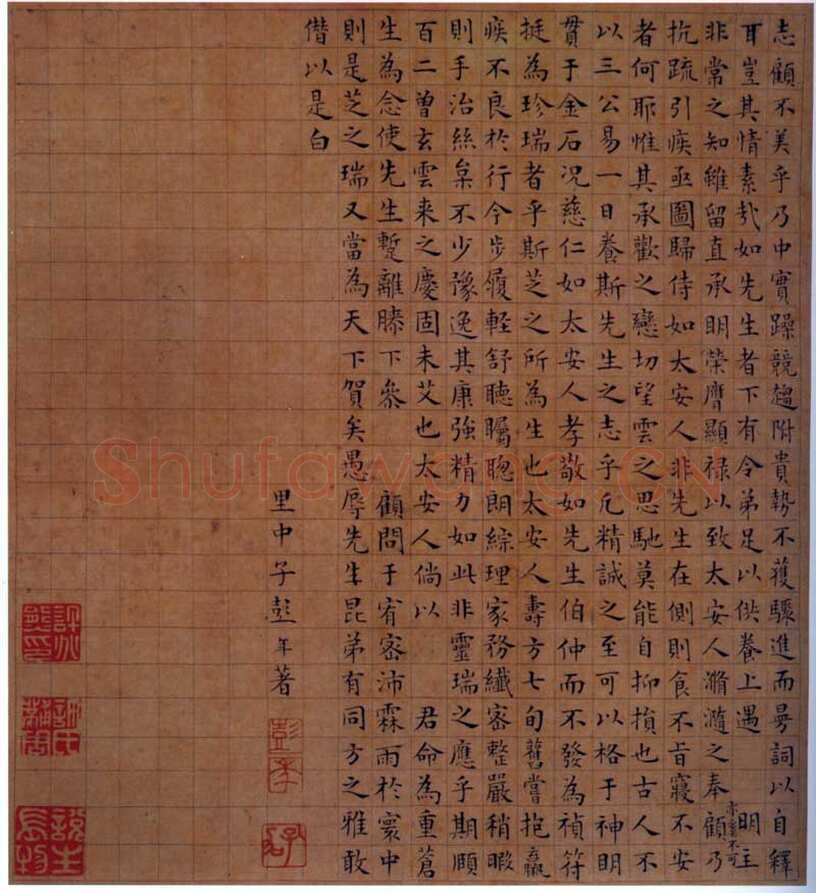 志顧不美乎乃中實躁競趨附貴勢不獲驟進而曼詞以自釋
耳豈其情素哉如先生者下有令弟足以供養上遇 明主
非常之知雖留直承明榮膺顯祿以致太安人滫瀡之奉顧乃
亦無不可
抗疏引疾亟圖歸侍如太安人非先生在側則食不旨寢不安
者何耶惟其承歡之戀切望雲之思馳莫能自抑損也古人不
以三公易一日養斯先生之志乎凡精誠之至可以格于神明
貫于金石况慈仁如太安人孝敬如先生伯仲而不發為禎符
挺為珍瑞者乎斯芝之所為生也太安人壽方七旬舊嘗抱羸
疾不良於行今步履輕舒聽矚聰朗綜理家務纖密整嚴稍暇
則手治絲枲不少豫逸其康強精力如此非靈瑞之應乎期頤
百二曾玄雲来之慶固未艾也太安人倘以 君命為重蒼
生為念使先生蹔離膝下叅 顧問于宥密沛霖雨於寰中
則是芝之瑞又當為天下賀矣愚辱先生昆弟有同方之雅敢
僭以是白
里中子彭年著
彭年
Shufawang.CN